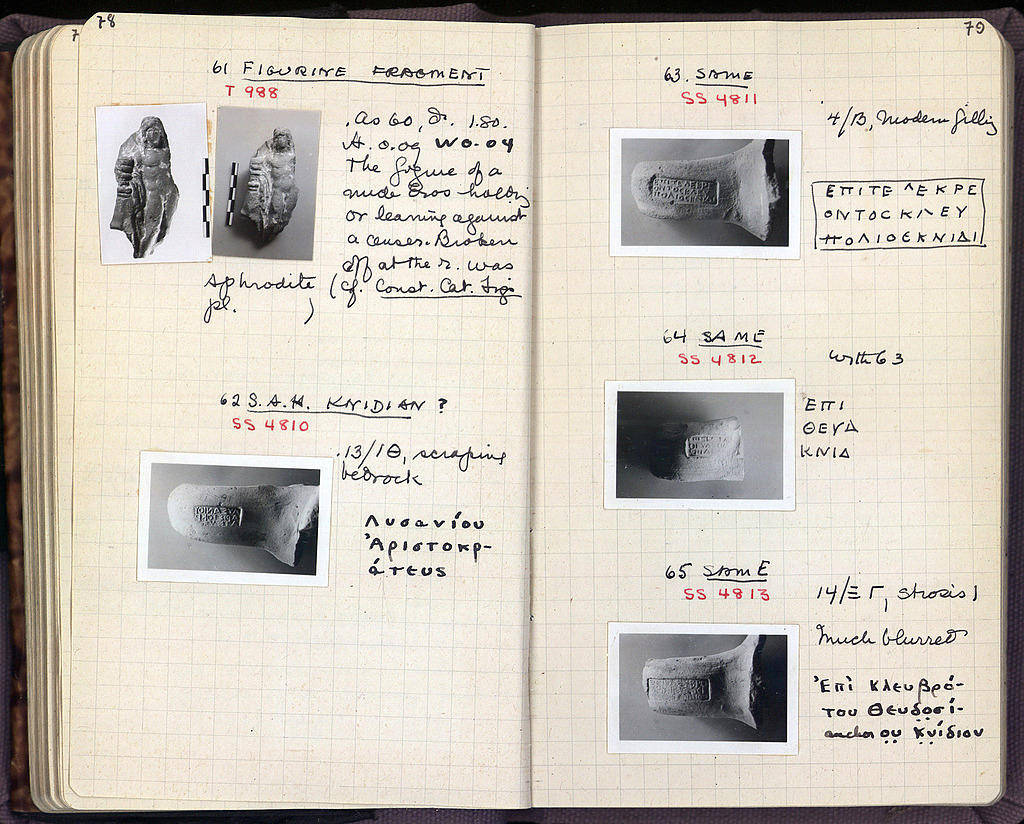 78
61 FIGURINE FRAGMENT
T 988
. As 60, d. 1.80.
H. 0.09 W 0.04
The figure of a
nude Eros holding
or leaning against
a causer. Broken
off at the r. was
Aphrodite (cf. Const. Cat. Figs
pl. )
62 S.A.H. KNIDIAN ?
SS 4810
. 13/ΙΘ, scraping
bedrock
Λυσανίου
Ἀριστοκρ-
άτευς
79
63. SAME
SS 4811
4/Β, Modern filling
ΕΠΙΤΕΛΕΚΡΕ
ΟΝΤΟΣΚΛΕΥ
ΠΟΛΙΟΣΚΝΙΔΙ
64 SAME
SS 4812
with 63
ΕΠΙ
ΘΕΥΔ
ΚΝΙΔ
65 SAME
SS 4813
14/Ξ Γ, strosis 1
Much blurred
Ἐπὶ Κλευβρό-
του Θευδοσί-
anchor ου Κνίδιον